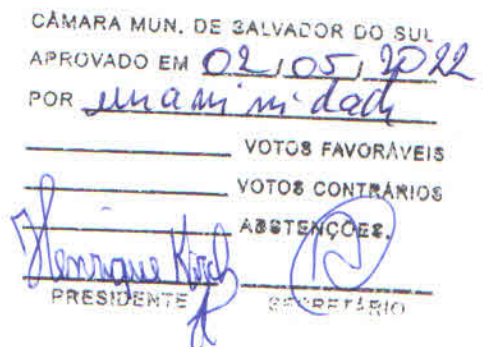 CÂMARA MUN. DE SALVADOR DO SUL
APROVADO EM 02/05/2022
POR unanimidade
VOTOS FAVORÁVEIS
VOTOS CONTRÁRIOS
ABSTENÇÕES.
Henrique
PRESIDENTE SECRETÁRIO